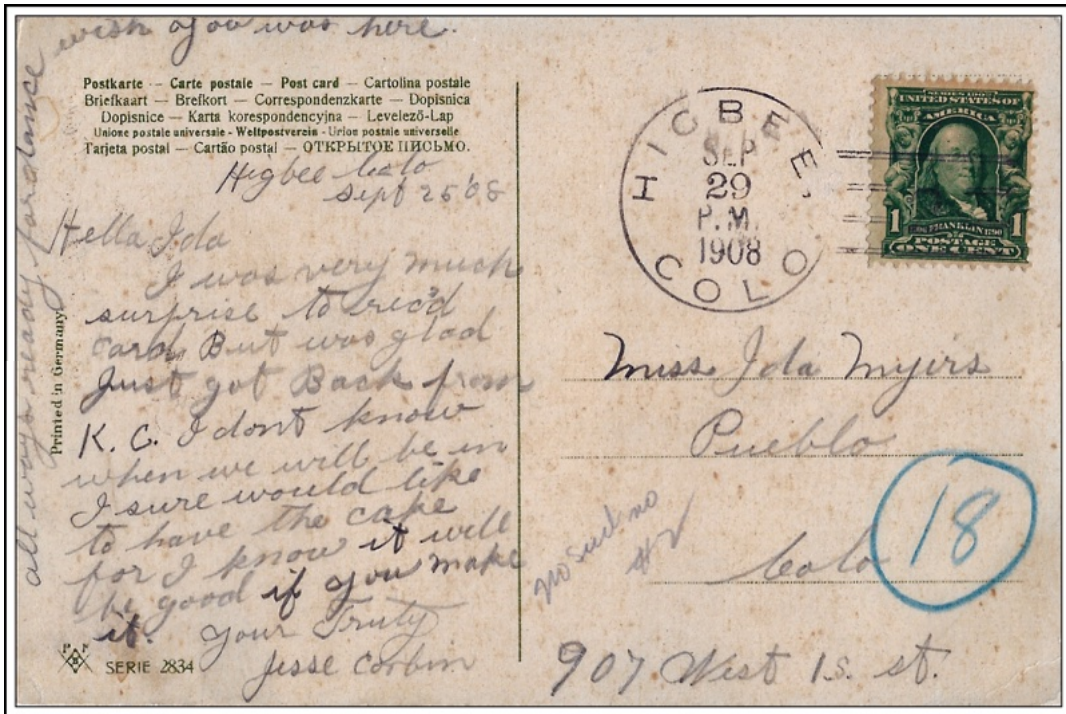 wish you was here.
Postkarte — Carte postale — Post card — Cartolina postale
Briefkaart — Brefkort — Correspondenzkarte — Dopisnica
Dopisnice — Karta korespondencyjna — Levelező-Lap
Unione postale universale - Weltpostverein - Union postale universelle
Tarjeta postal — Cartão postal — ОТКРЫТОЕ ПИСЬМО.
Higbee Colo
Sept 25 '08
Hello Ida
I was very much
surprise to rec'd
card. But was glad
Just got Back from
K. C. I dont know
when we will be in
I sure would like
to have the cake
for I know it will
be good if you make
it. Your Truly
Jesse Corbin
all ways ready for a dance
Printed in Germany
SERIE 2834
HIGBEE
SEP
29
P.M.
1908
COLO
SERIES 1902
UNITED STATES OF
AMERICA
1 FRANKLIN 1790 1
POSTAGE
ONE CENT
Miss Ida Myirs
Pueblo
Colo
18
no such no
907 West 1s. st.